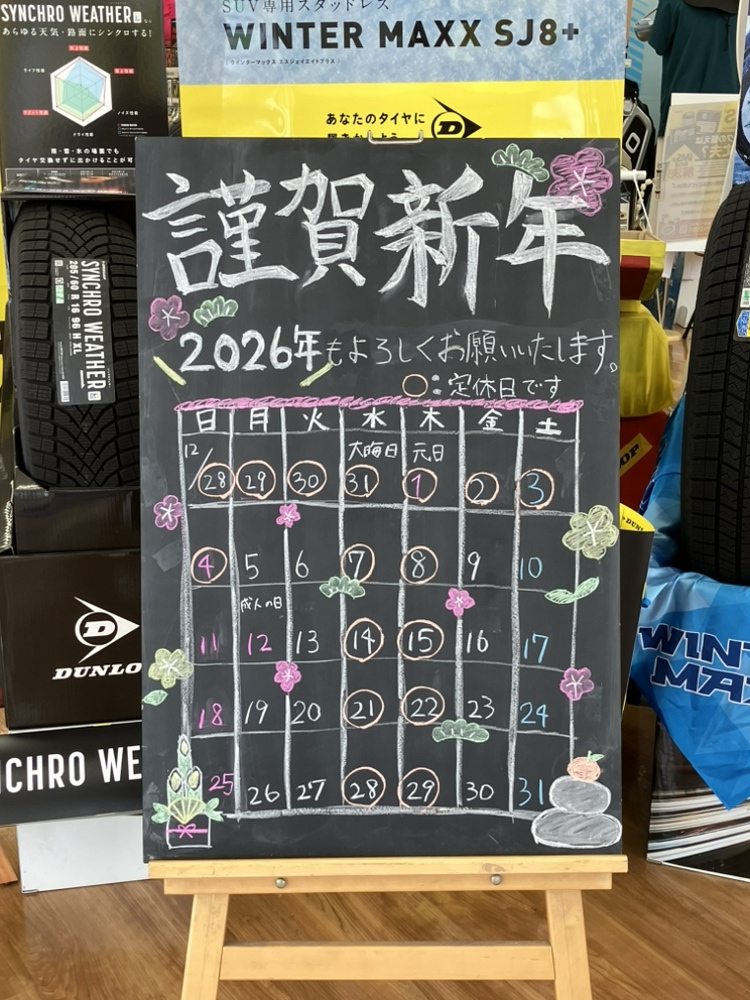 SYNCHRO WEATHER
あらゆる天気・路面にシンクロする!
ドライ性能
雨・雪・氷の場面でも
SUV専用スタッドレス
WINTER MAXX SJ8+
ウインターマックス エスジェイエイトプラス
あなたのタイヤに
謹賀新年
2026年もよろしくお願いいたします。
○:定休日です
日 月 火 水 木 金 土
大晦日 元日
12/28 29 30 31 1 2 3
4 5 6 7 8 9 10
成人の日
11 12 13 14 15 16 17
18 19 20 21 22 23 24
25 26 27 28 29 30 31
SYNCHRO WEATHER
205/60 R 16 96 H XL
DUNLOP
NCHRO WE
DUNLO
WINT
MA